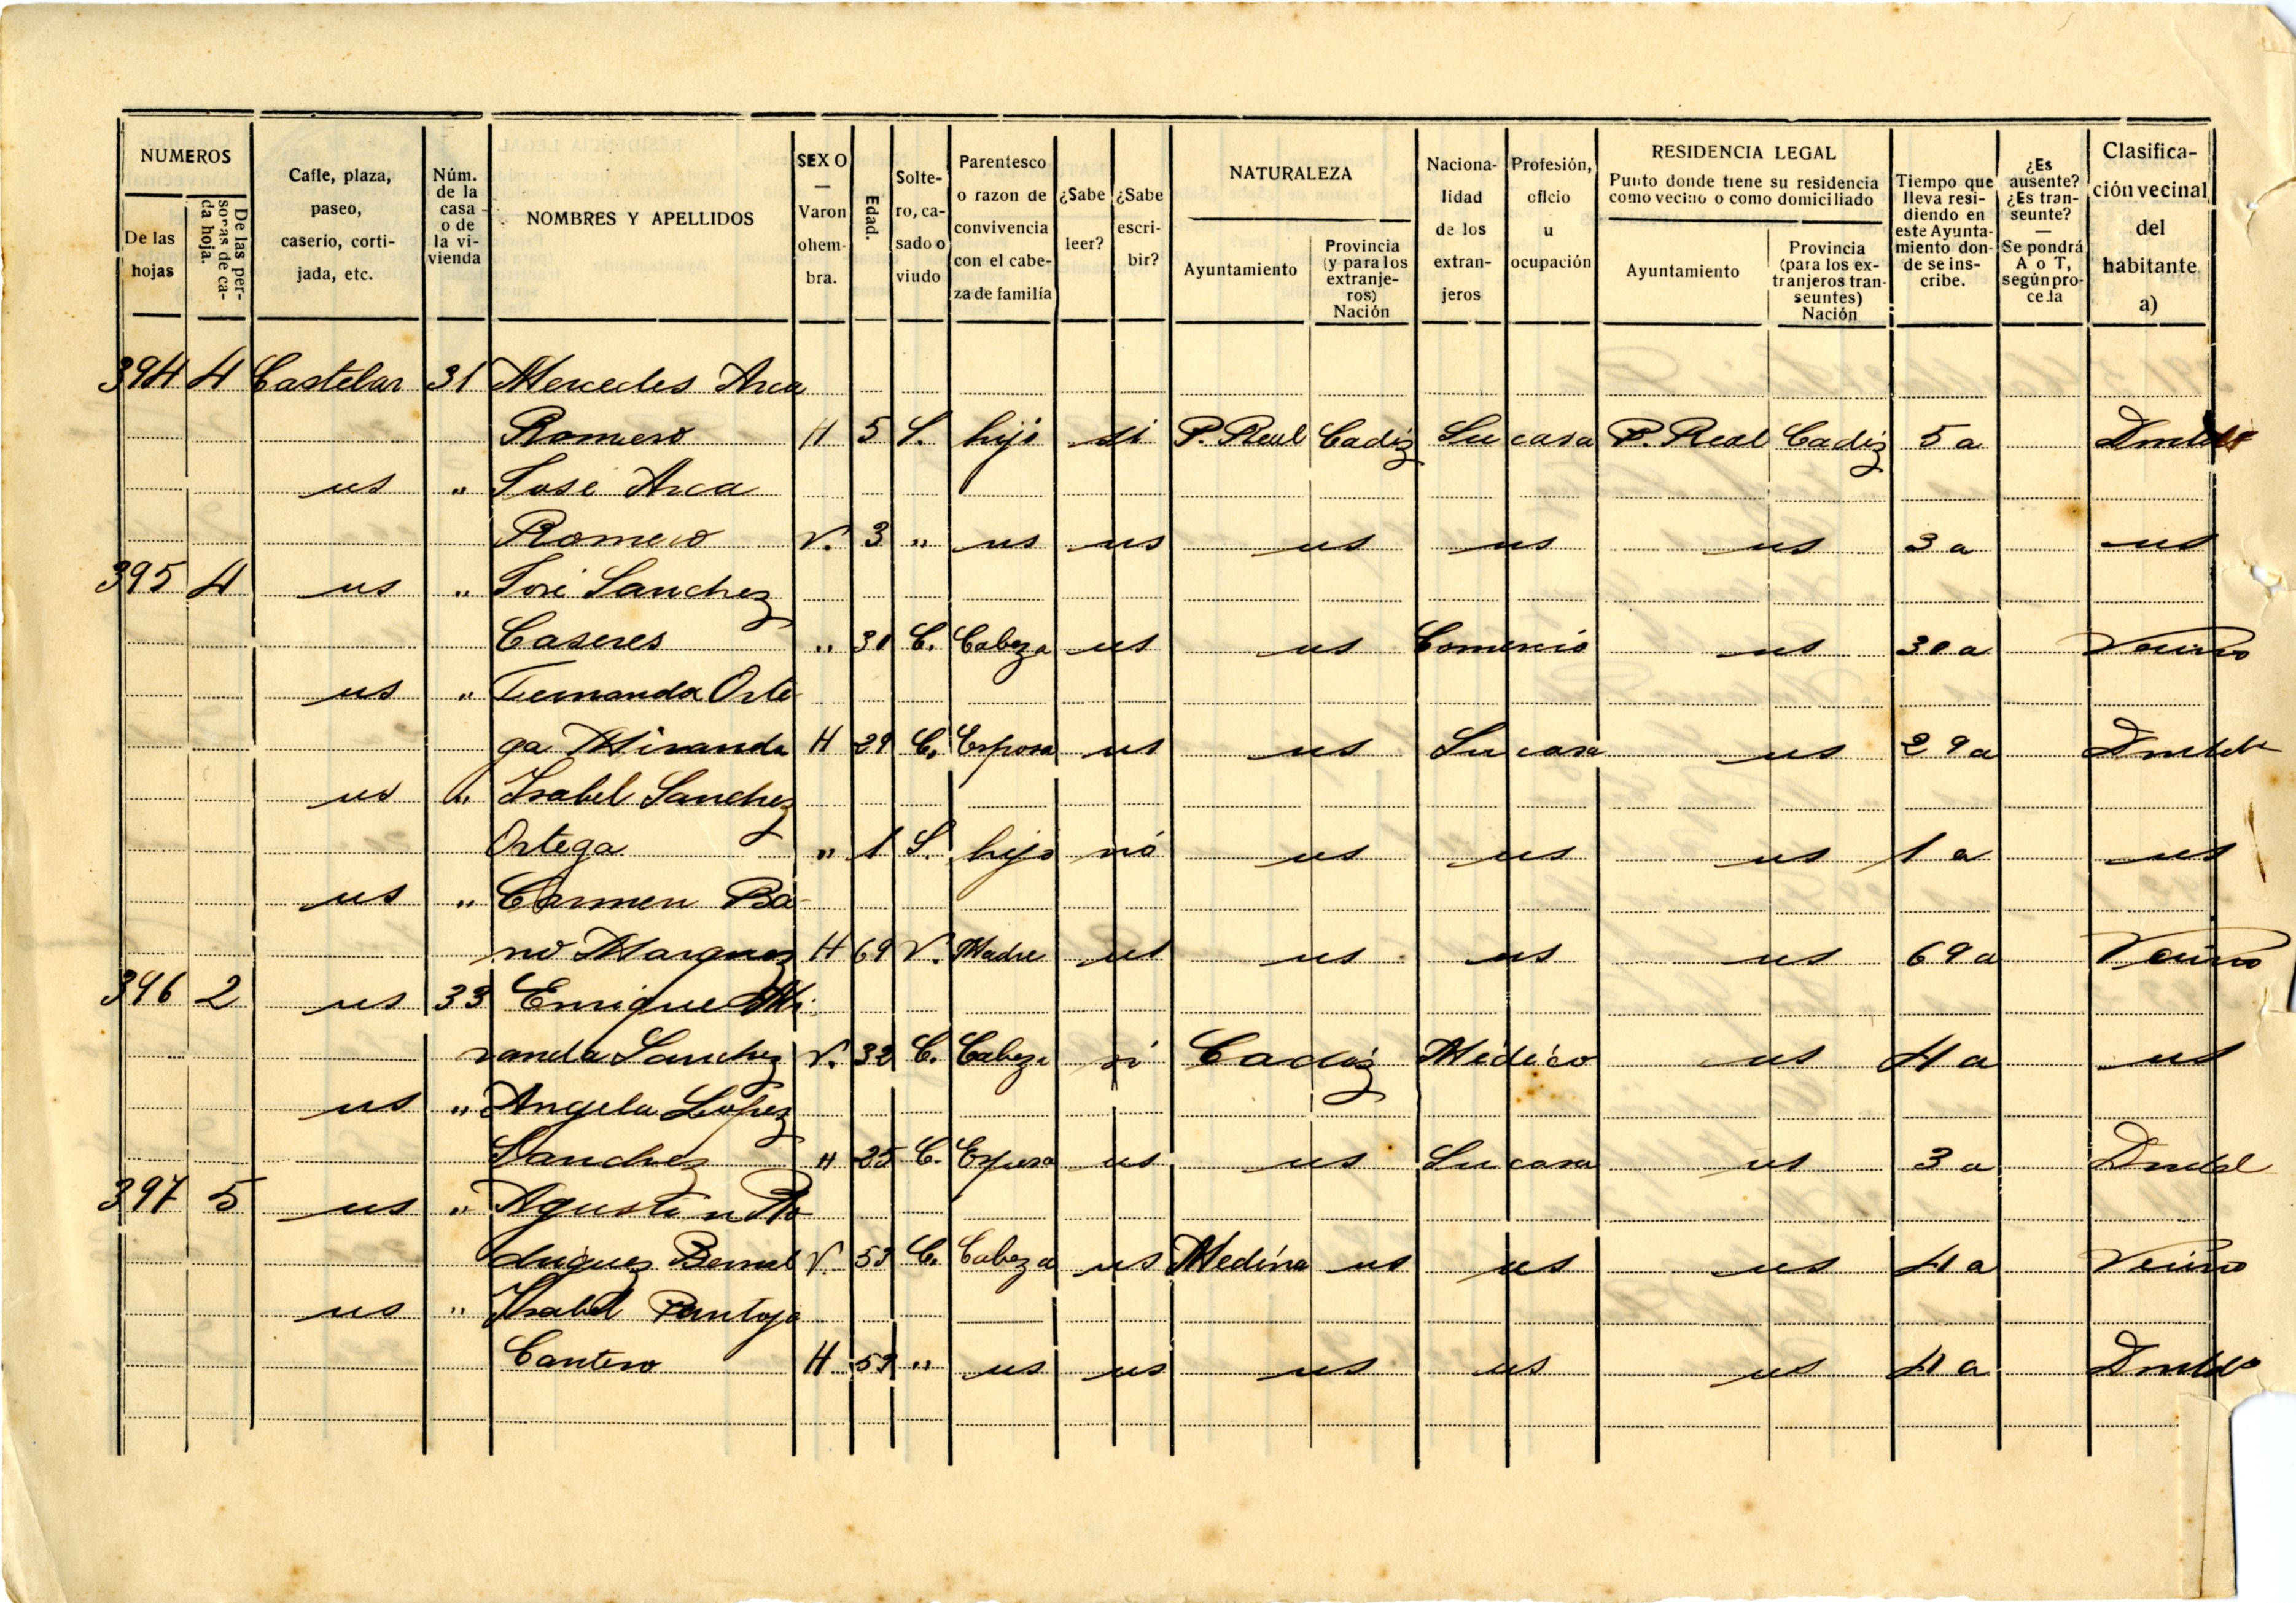 NUMEROS
De las hojas
De las personas de cada hoja.
Calle, plaza, paseo, caserio, cortijada, etc.
Núm. de la casa o de la vivienda
NOMBRES Y APELLIDOS
SEXO — Varon o hembra.
Edad.
Soltero, casado o viudo
Parentesco o razon de convivencia con el cabeza de familia
¿Sabe leer?
¿Sabe escribir?
NATURALEZA
Ayuntamiento
Provincia (y para los extranjeros) Nación
Nacionalidad de los extranjeros
Profesión, oficio u ocupación
RESIDENCIA LEGAL
Punto donde tiene su residencia como vecino o como domiciliado
Ayuntamiento
Provincia (para los extranjeros transeuntes) Nación
Tiempo que lleva residiendo en este Ayuntamiento donde se inscribe.
¿Es ausente? ¿Es transeunte? — Se pondrá A o T, según proceda
Clasificación vecinal del habitante a)
394 4 Castelar 31 Mercedes Arca
Romero H 5 S. hijo si P. Real Cadiz Su casa P. Real Cadiz 5 a Dmtdo
us " José Arca
Romero V. 3 " us us us us us 3 a us
395 4 us " José Sanchez
Caseres " 30 C. Cabeza us us Comercio us 30 a Vecino
us " Fernanda Orte
ga Miranda H 29 C. Esposa us us Su casa us 29 a Dmtdo
us " Isabel Sanchez
Ortega " 1 S. hijo nó us us us 1 a us
us " Carmen Ba-
no Marquez H 69 V. Madre us us us us 69 a Vecino
396 2 us 33 Enrique Mi
randa Sanchez V. 32 C. Cabeza si Cadiz Médico us 4 a us
us " Angela Lopez
Sanchez H 25 C. Esposa us us Su casa us 3 a Dmtdo
397 5 us " Agustin Ro
driguez Bernal V. 53 C. Cabeza us Medina us us us 4 a Vecino
us " Isabel Pantoja
Cantero H 53 " us us us us us 4 a Dmtdo